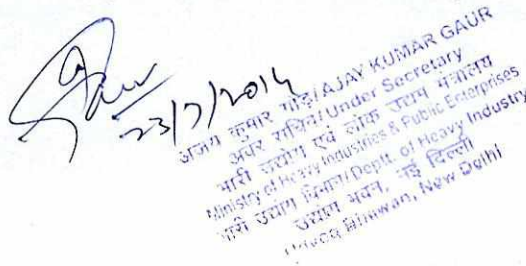 23/7/2014
अजय कुमार गौड़/AJAY KUMAR GAUR
अवर सचिव/Under Secretary
भारी उद्योग एवं लोक उद्यम मंत्रालय
Ministry of Heavy Industries & Public Enterprises
भारी उद्योग विभाग/Deptt. of Heavy Industry
उद्योग भवन, नई दिल्ली
Udyog Bhawan, New Delhi